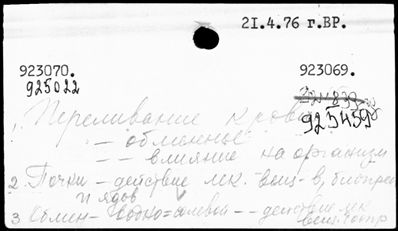 21.4.76 г.ВР.
923070. 923069.
925022 925459
1. Переливание крови
- обменное
- - влияние на организм
2. Почки - действие лек. вещ-в, биопреп
и ядов
3. Обмен - водно-солевой - - действие лек
вещ.